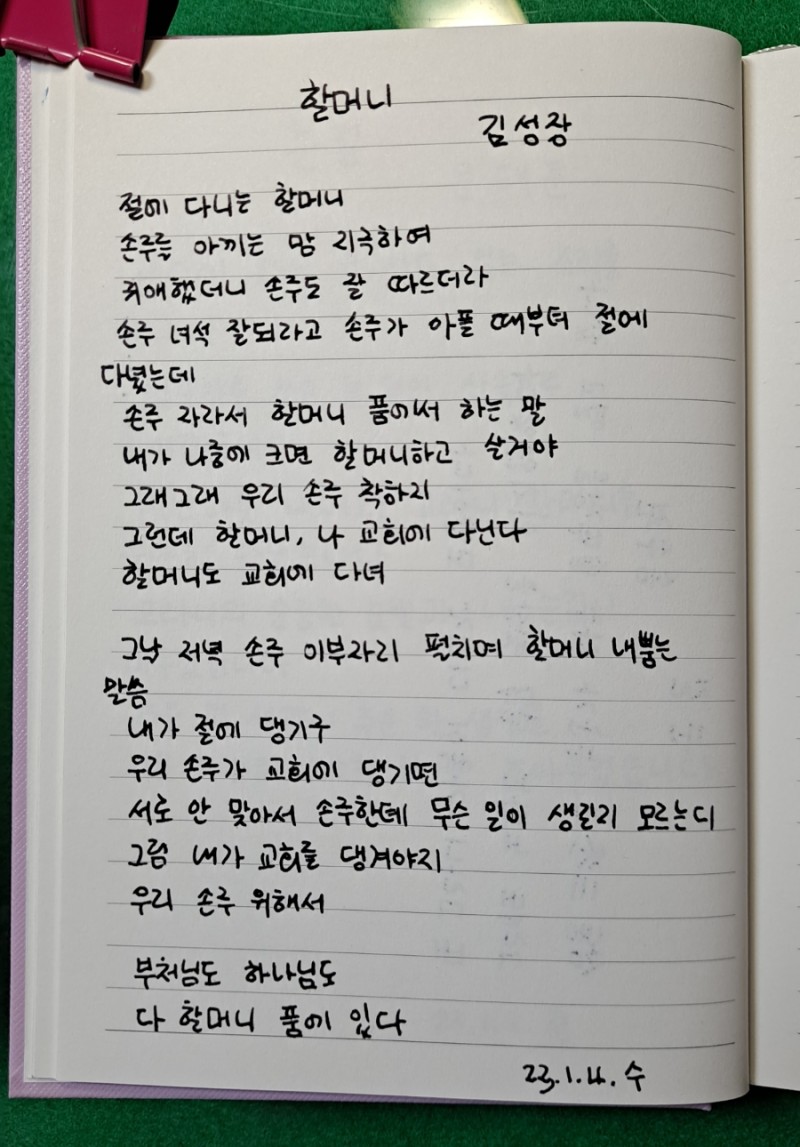 할머니
김성장
절에 다니는 할머니
손주를 아끼는 맘 지극하여
귀애했더니 손주도 잘 따르더라
손주 녀석 잘되라고 손주가 아플 때부터 절에
다녔는데
손주 자라서 할머니 품에서 하는 말
내가 나중에 크면 할머니하고 살거야
그래그래 우리 손주 착하지
그런데 할머니, 나 교회에 다닌다
할머니도 교회에 다녀
그날 저녁 손주 이부자리 펼치며 할머니 내뿜는
말씀
내가 절에 댕기구
우리 손주가 교회에 댕기면
서로 안 맞아서 손주한데 무슨 일이 생긴지 모르는디
그럼 내가 교회를 댕겨야지
우리 손주 위해서
부처님도 하나님도
다 할머니 품에 있다
23.1.4. 수